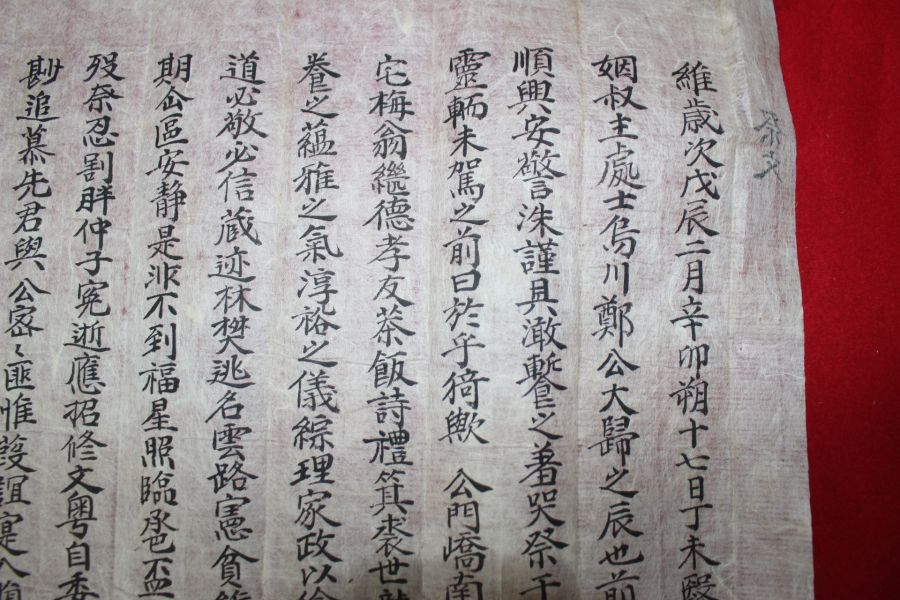 祭文
維歲次戊辰二月辛卯朔十七日丁未
姻叔主處士烏川鄭公大歸之辰也前
順興安謹具澈之着哭祭于
靈輀未駕之前曰於乎猗歟 公門嶠南
宅梅翁繼德孝友茶飯詩禮箕裘世
養之蘊雅之氣淳裕之儀綜理家政以
道必敬必信蔵迹林樊逃名雲路憲貧
期仚區安静是非不到福星照臨卺盃
殁奈忍割胖仲子寃逝應招修文粤自委
追慕先君與公密〻匪惟葭誼寔